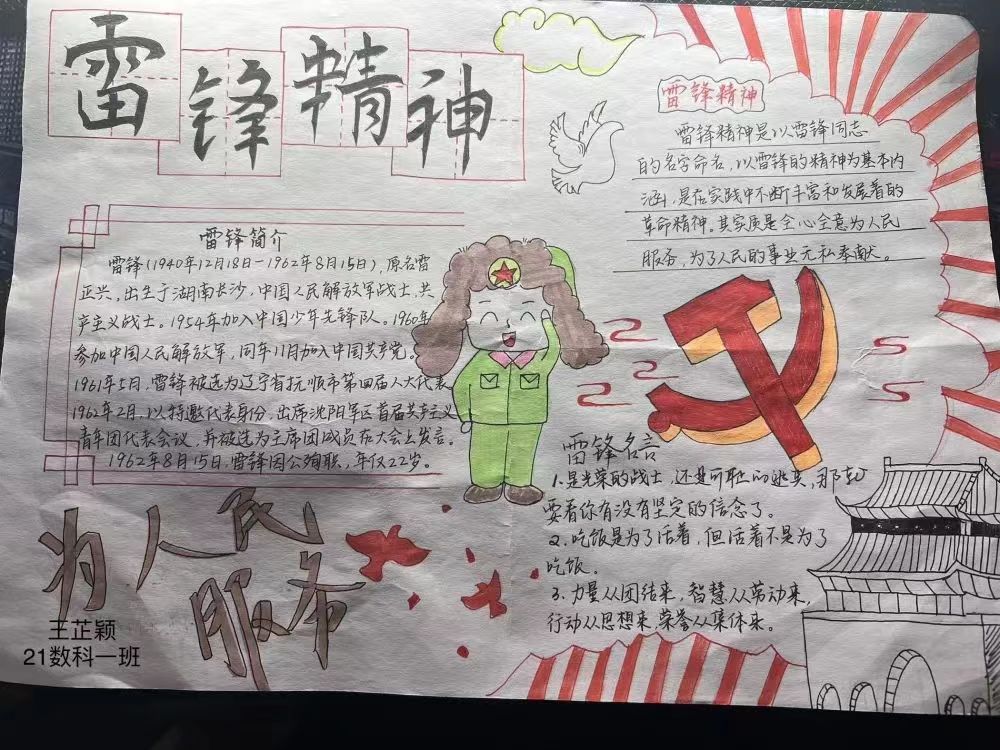 雷锋精神
雷锋简介
雷锋(1940年12月18日-1962年8月15日),原名雷
正兴,出生于湖南长沙,中国人民解放军战士,共
产主义战士。1954年加入中国少年先锋队。1960年
参加中国人民解放军,同年11月加入中国共产党。
1961年5月,雷锋被选为辽宁省抚顺市第四届人大代表
1962年2月,以特邀代表身份,出席沈阳军区首届共产主义
青年团代表会议,并被选为主席团成员在大会上发言。
1962年8月15日,雷锋因公殉职,年仅22岁。
为人民
服务
王芷颖
21数科一班
雷锋精神
雷锋精神是以雷锋同志
的名字命名,以雷锋的精神为基本内
涵,是在实践中不断丰富和发展着的
革命精神。其实质是全心全意为人民
服务,为了人民的事业无私奉献。
雷锋名言
1.是光荣的战士,还是可耻的逃兵,那就
要看你有没有坚定的信念了。
2.吃饭是为了活着,但活着不是为了
吃饭。
3.力量从团结来,智慧从劳动来,
行动从思想来,荣誉从集体来。